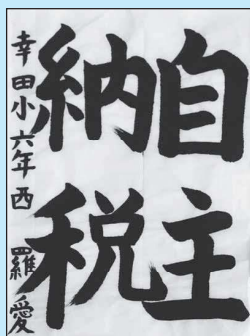 自主
納税
幸田小六年西 羅愛